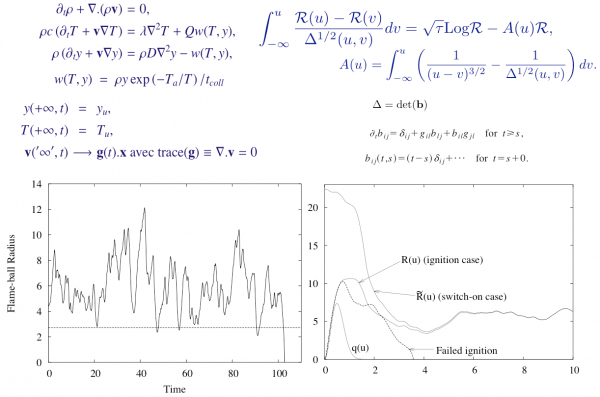 ∂ₜρ + ∇.(ρv) = 0,
ρc (∂ₜT + v∇T) = λ∇²T + Qw(T, y),
ρ (∂ₜy + v∇y) = ρD∇²y − w(T, y),
w(T, y) = ρy exp (−Tₐ/T) /t_coll
y(+∞, t) = y_u,
T(+∞, t) = T_u,
v('∞', t) ⟶ g(t).x avec trace(g) ≡ ∇.v = 0
∫_{−∞}^{u} (R(u) − R(v))/(Δ^{1/2}(u, v)) dv = √τ LogR − A(u)R,
A(u) = ∫_{−∞}^{u} ( 1/((u − v)^{3/2}) − 1/(Δ^{1/2}(u, v)) ) dv.
Δ = det(b)
∂ₜb_{ij} = δ_{ij} + g_{il}b_{lj} + b_{il}g_{jl} for t ≥ s,
b_{ij}(t,s) = (t−s) δ_{ij} + ⋯ for t = s+0.
Flame-ball Radius
14
12
10
8
6
4
2
0
0 20 40 60 80 100
Time
20
15
10
5
0
R(u) (ignition case)
R̃(u) (switch-on case)
q(u)
Failed ignition
0 2 4 6 8 10